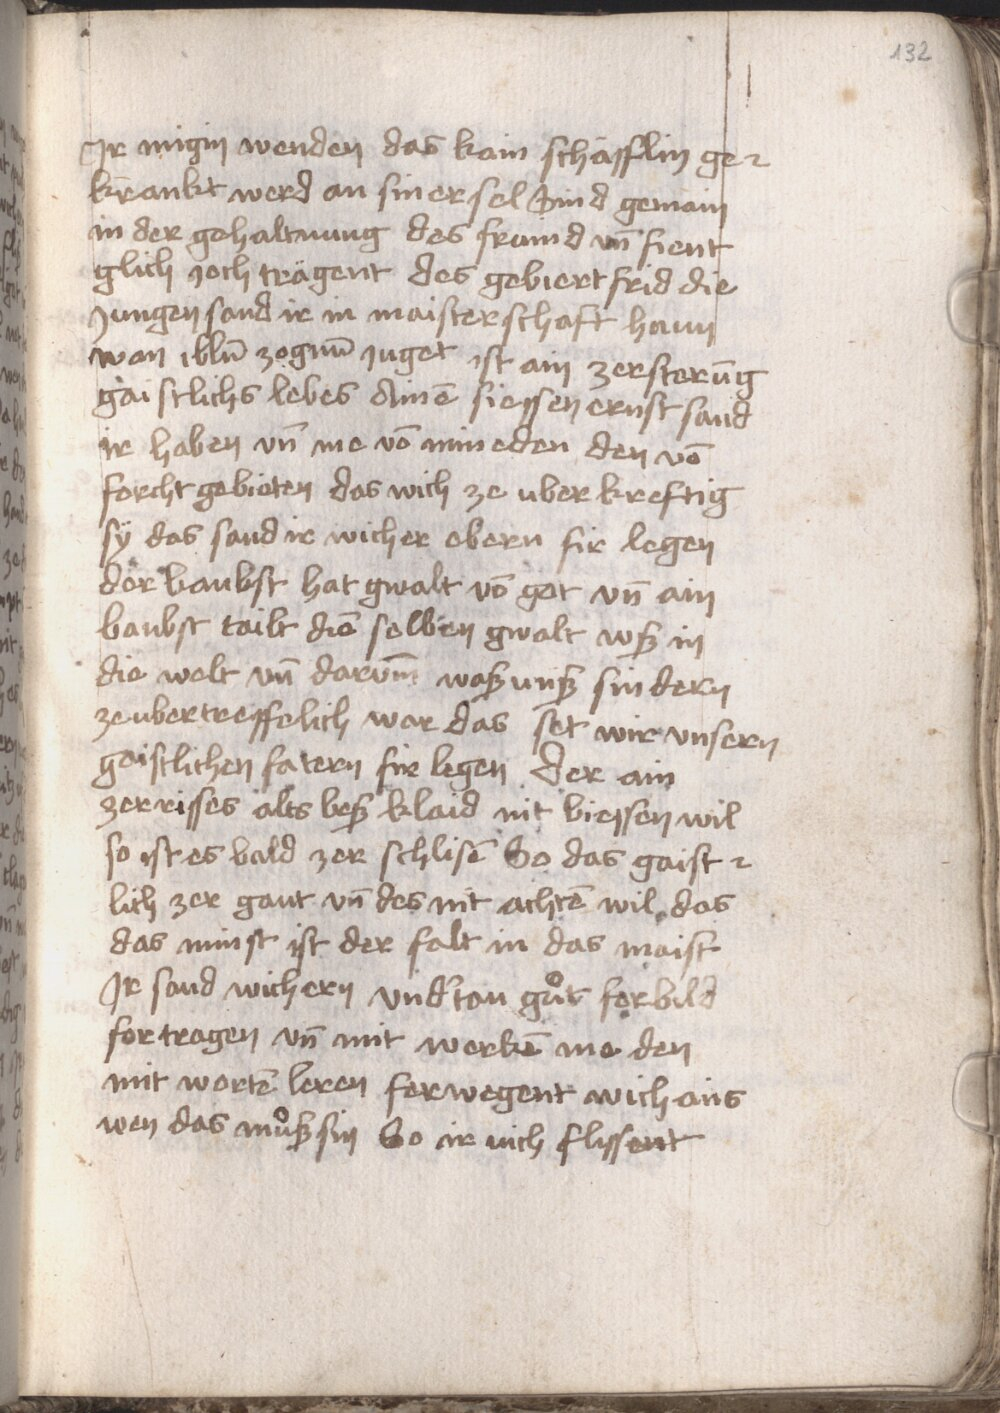 132
Ir migin wenden das kain schäfflin ge-
krankt werd an siner sel Sind gemain
in der gehaltnung des frund vn̄ fient
glich joch trägent des gebiert frid die
jungen sand ir in maisterschaft haun
wan jblū zognū juget ist ain zersterūg
gaistlichs lebes ainē siessen ernst sand
ir haben vn̄ me vō min eden den vō
forcht gebioten das wich ze uberkreftig
sÿ das sand ir wicher obern fir legen
der baubst hat gwalt vō got vn̄ ain
baubst tailt diē selben gwalt in
die welt vn̄ darvm̄ sindern
ze ubertreffelich war das set wir vnsern
gaistlichen fatern fir legen Der ain
zerrisses alts klaid nit biessen wil
so ist es bald zer schlisē So das gaist-
lich zer gant vn̄ des nit achtē wil das
das minst ist der falt in das maist
Ir sand wichern vndtan gůt forbild
for tragen vn̄ mit werkē me den
mit wortē leren ferwegent wich ains
wen das můß sin So ir uich flissent